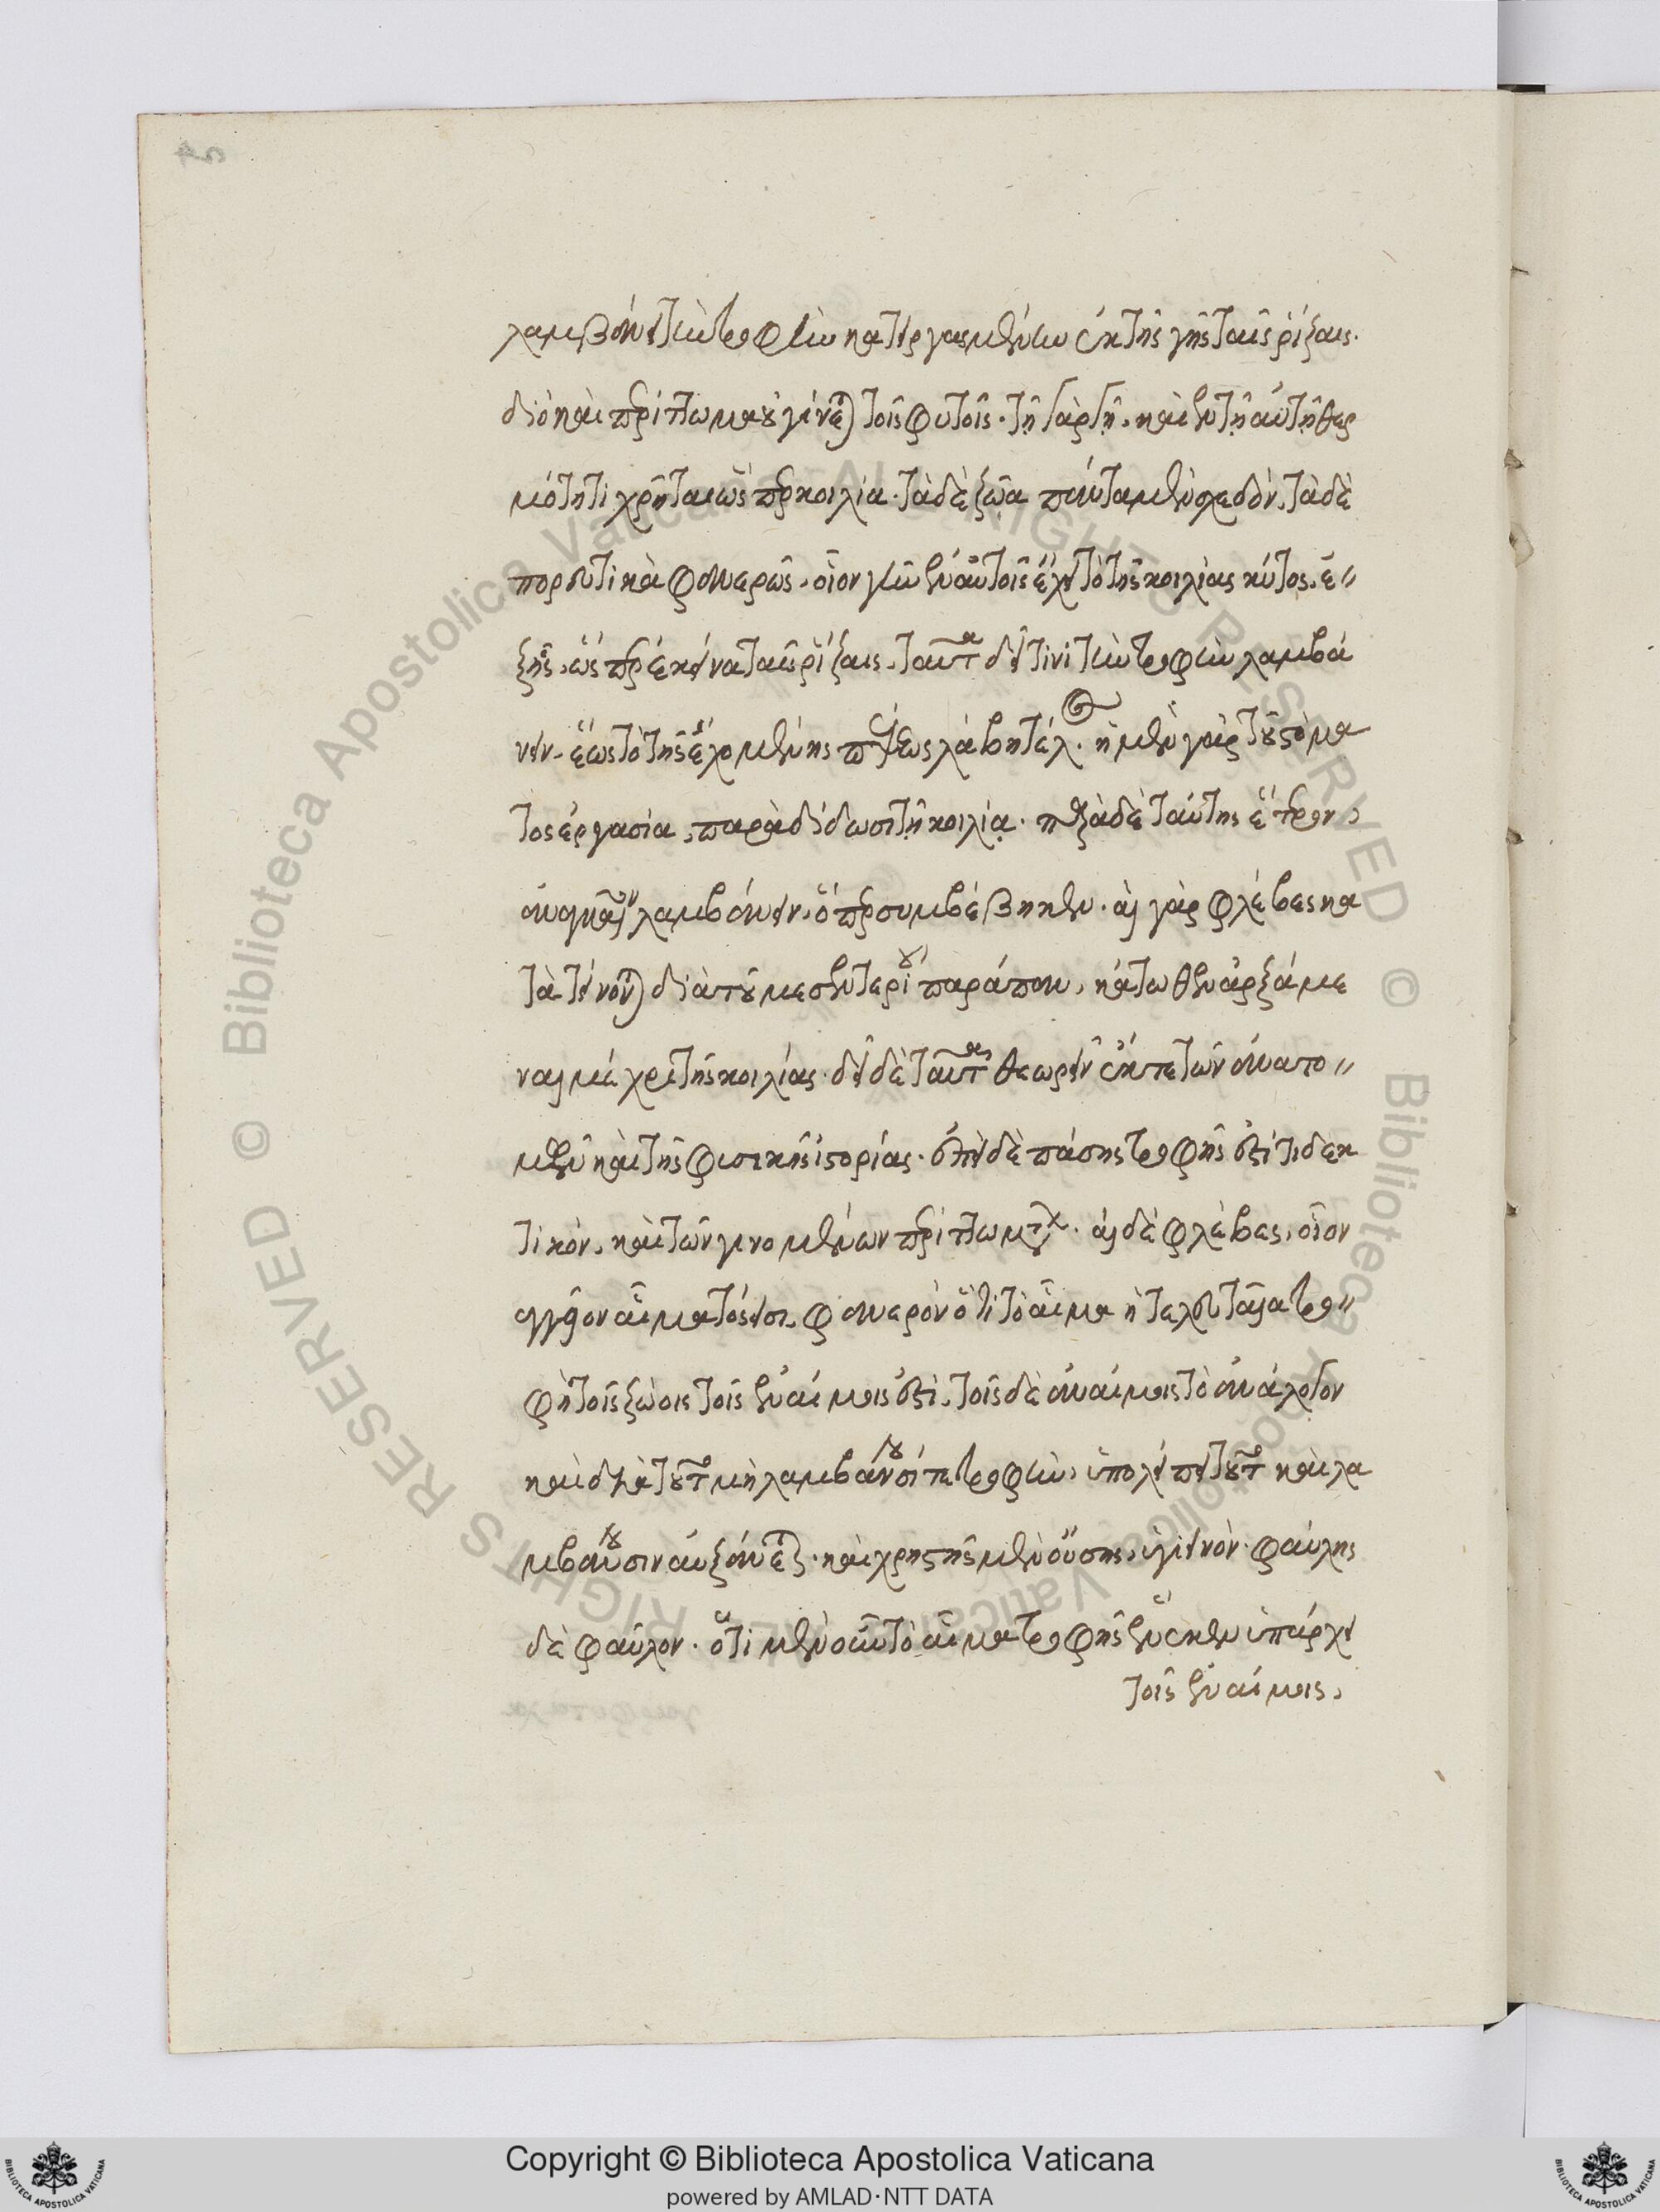 λαμβάνει τὴν τροφὴν κατειργασμένην ἐκ τῆς γῆς ταῖς ῥίζαις.
διὸ καὶ περίττωμα οὐ γίνεται τοῖς φυτοῖς. τῇ γὰρ γῇ, καὶ ἐν τῇ αὐτῇ θερ
μότητι χρῆται ὥσπερ κοιλία. τὰ δὲ ζῶα πάντα μὲν σχεδὸν, τὰ δὲ
πορευτικὰ φανερῶς, οἷον γῆν ἐν αὑτοῖς ἔχει τὸ τῆς κοιλίας κύτος, ἐ〃
ξῆς, ὥσπερ ἐκεῖνα ταῖς ῥίζαις. ταῦτα δεῖ τινὶ τὴν τροφὴν λαμβά
νειν. ἕως τὸ τῆς ἐχομένης πέψεως λάβῃ τέλος. ἡ μὲν γὰρ τοῦ στόμα
τος ἐργασία, παραδίδωσι τῇ κοιλίᾳ. παρὰ δὲ ταύτης ἕτερον,
ἀναγκαῖον λαμβάνειν. ὅπερ συμβέβηκεν. αἱ γὰρ φλέβες κα
τατείνονται διὰ τοῦ μεσεντερίου παράπαν, κάτωθεν ἀρξάμε
ναι μέχρι τῆς κοιλίας. δεῖ δὲ ταῦτα θεωρεῖν ἔκ τε τῶν ἀνατο〃
μῶν καὶ τῆς φυσικῆς ἱστορίας. ἐπεὶ δὲ πάσης τροφῆς ἐστί τι δεκ
τικόν, καὶ τῶν γινομένων περιττωμάτων. αἱ δὲ φλέβες, οἷον
ἀγγεῖον αἵματός εἰσι. φανερὸν ὅτι τὸ αἷμα ἡ τελευταία τρο〃
φὴ τοῖς ζώοις τοῖς ἐναίμοις ἐστὶ. τοῖς δὲ ἀναίμοις τὸ ἀνάλογον
καὶ διὰ τοῦτο μὴ λαμβάνουσί τε τροφὴν, ὑπολείπει τοῦτο καὶ λα
μβάνουσιν αὐξάνεται. καὶ χρηστῆς μὲν οὔσης, ὑγιεινόν. φαύλης
δὲ φαῦλον. ὅτι μὲν οὖν τὸ αἷμα τροφῆς ἕνεκεν ὑπάρχει
τοῖς ἐναίμοις,
Copyright © Biblioteca Apostolica Vaticana
powered by AMLAD·NTT DATA